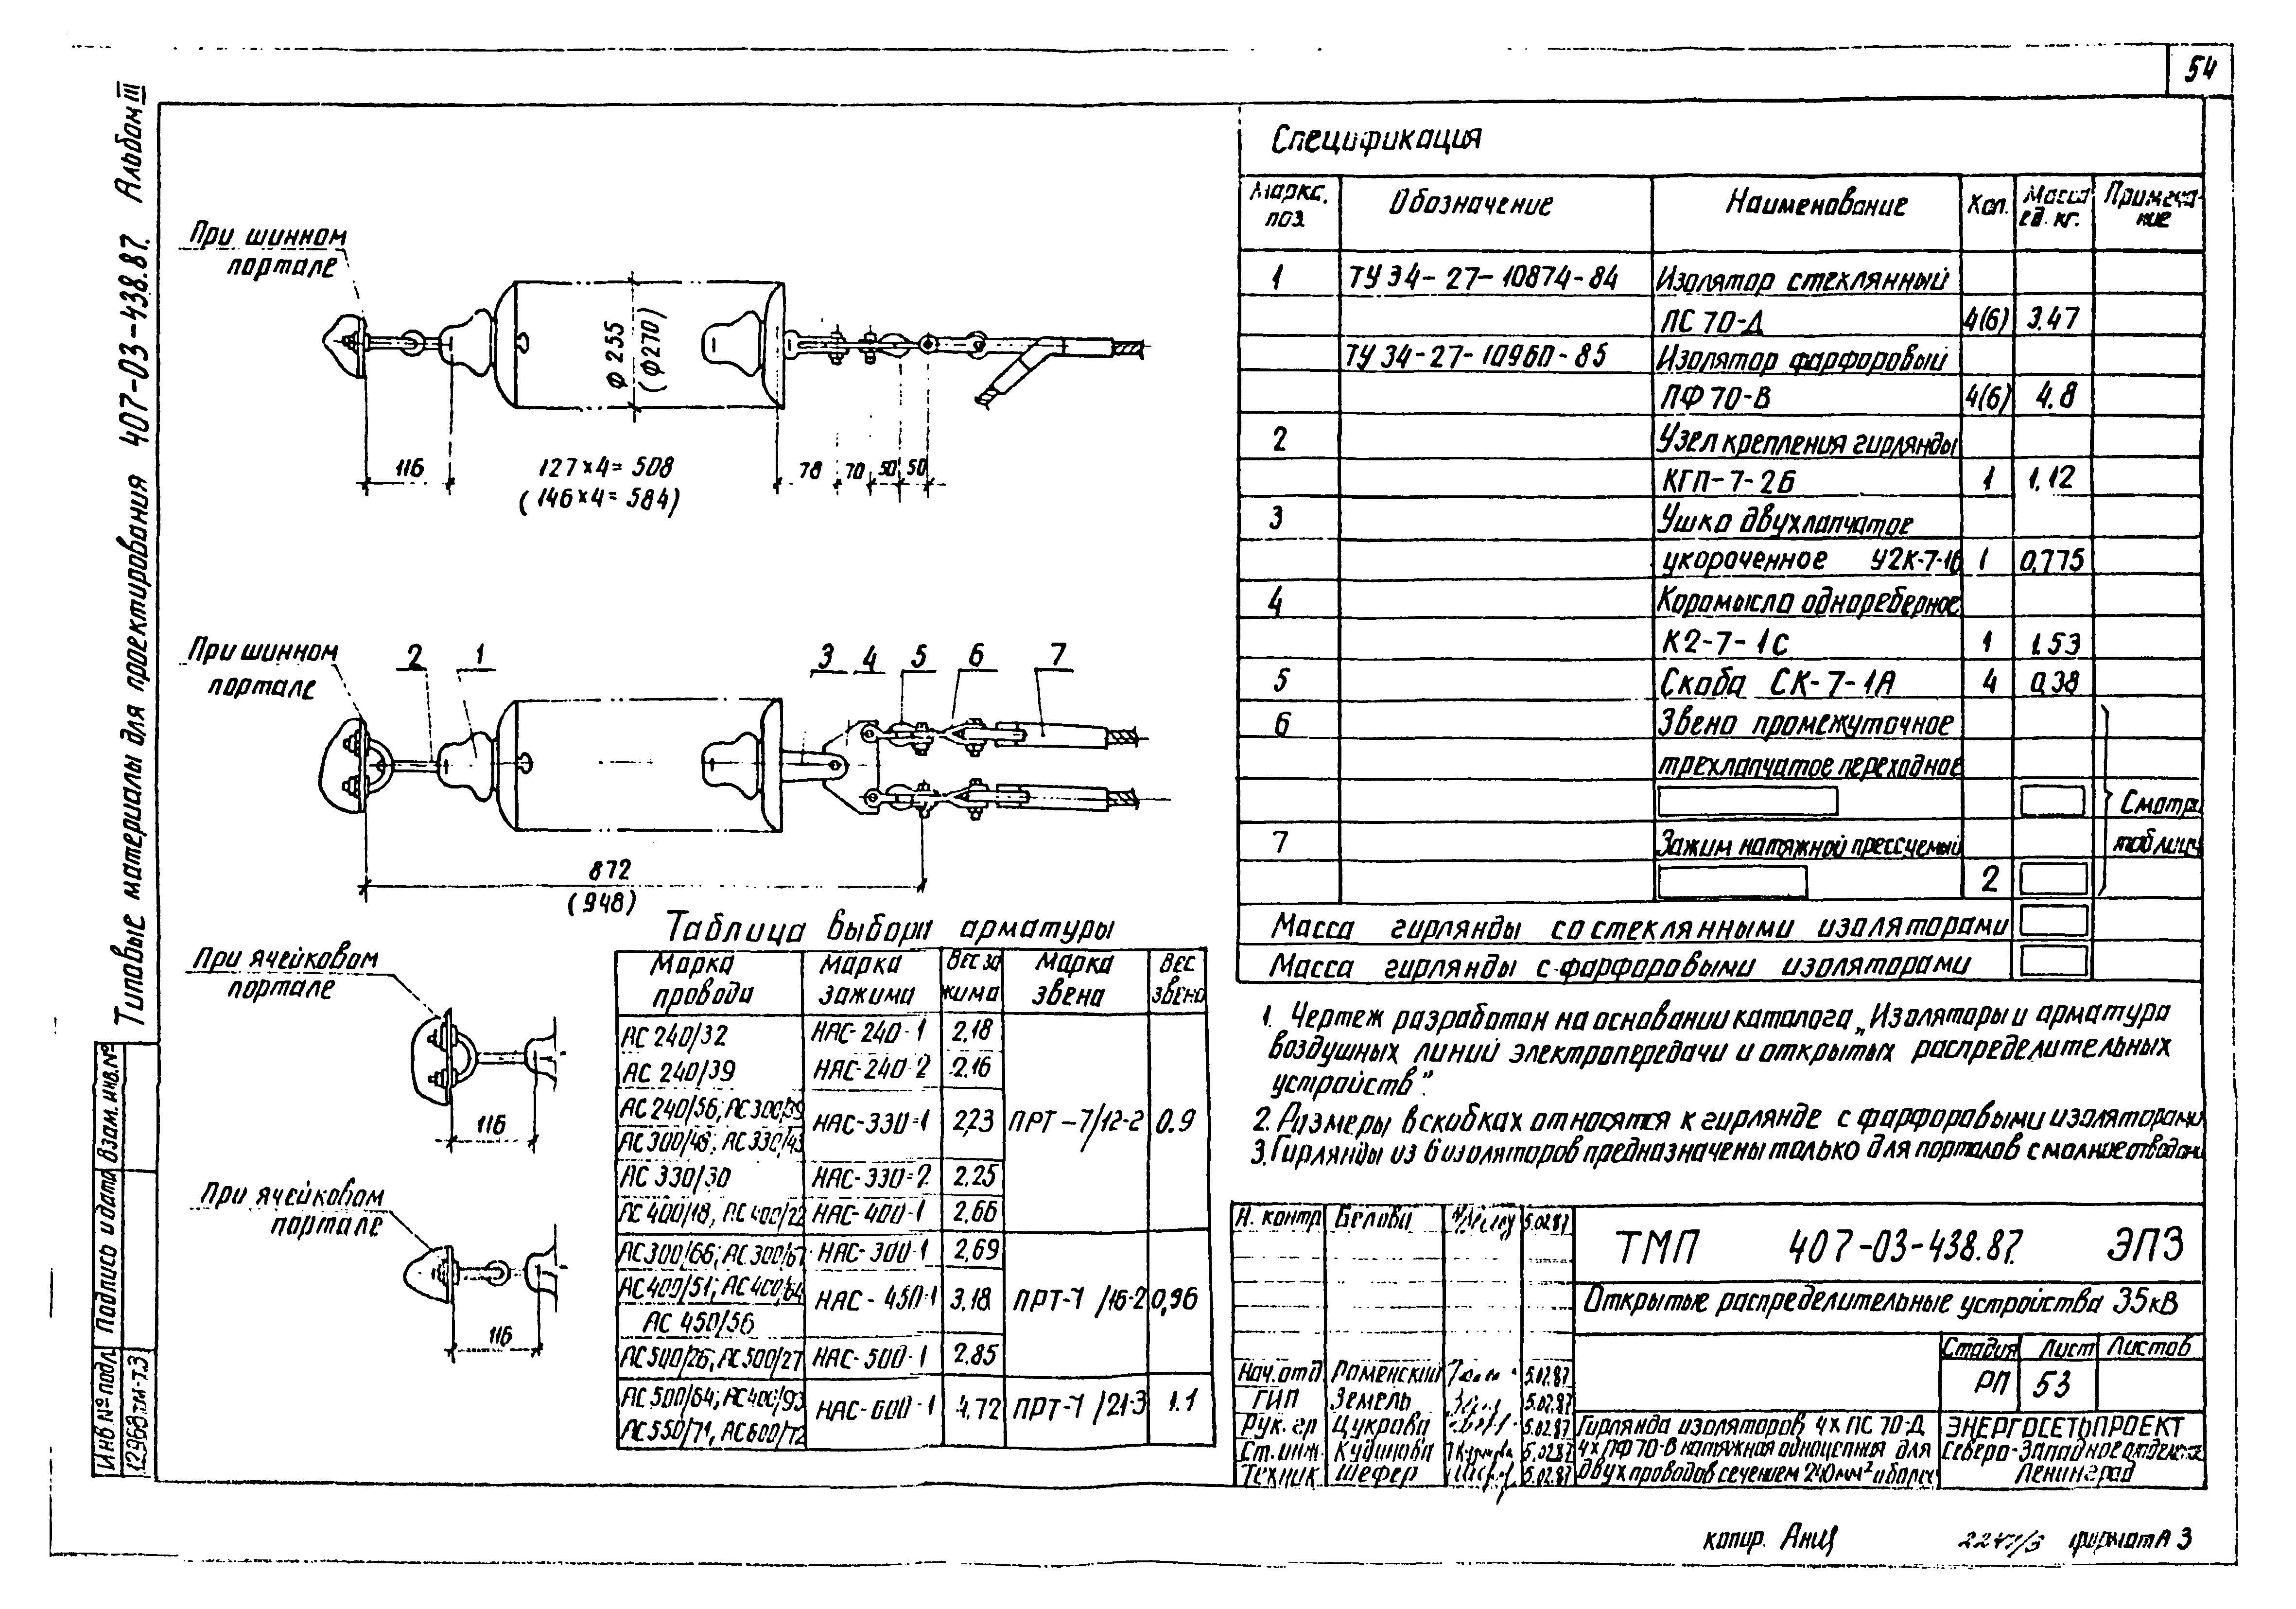 54
Типовые материалы для проектирования 407-03-438.87. Альбом III
При шинном
портале
Ф 255
(Ф270)
116
127×4=508
(146×4=584)
78 70 50 50
При шинном
портале
2 1 3 4 5 6 7
872
(948)
При ячейковом
портале
116
При ячейковом
портале
116
Таблица выбора арматуры
Марка провода | Марка зажима | Вес зажима | Марка звена | Вес звена
АС 240/32 | НАС-240-1 | 2,18
АС 240/39 | НАС-240-2 | 2,16
АС 240/56; АС 300/39
АС 300/48; АС 330/43 | НАС-330-1 | 2,23 | ПРТ-7/12-2 | 0.9
АС 330/30 | НАС-330-2 | 2,25
АС 400/18, АС 400/22 | НАС-400-1 | 2,66
АС 300/66; АС 300/67 | НАС-300-1 | 2,69
АС 400/51; АС 400/64
АС 450/56 | НАС-450-1 | 3,18 | ПРТ-7/16-2 | 0,96
АС 500/26; АС 500/27 | НАС-500-1 | 2,85
АС 500/64; АС 400/93
АС 550/71, АС 600/72 | НАС-600-1 | 4,72 | ПРТ-7/21-3 | 1.1
Спецификация
Марка, поз. | Обозначение | Наименование | Кол. | Масса ед. кг. | Примечание
1 | ТУ 34-27-10874-84 | Изолятор стеклянный
ПС 70-Д | 4(6) | 3.47
ТУ 34-27-10960-85 | Изолятор фарфоровый
ПФ 70-В | 4(6) | 4,8
2 | Узел крепления гирлянды
КГП-7-2Б | 1 | 1,12
3 | Ушко двухлапчатое
укороченное У2К-7-16 | 1 | 0,775
4 | Коромысло однореберное
К2-7-1С | 1 | 1.53
5 | Скоба СК-7-1А | 4 | 0,38
6 | Звено промежуточное
трехлапчатое переходное
Смотри
7 | Зажим натяжной прессуемый | таблицу
2
Масса гирлянды со стеклянными изоляторами
Масса гирлянды с фарфоровыми изоляторами
1. Чертеж разработан на основании каталога „Изоляторы и арматура
воздушных линий электропередачи и открытых распределительных
устройств".
2. Размеры в скобках относятся к гирлянде с фарфоровыми изоляторами
3. Гирлянды из 6 изоляторов предназначены только для порталов с молниеотводами
Н. контр Белова 5.02.87
Нач. отд Роменский 5.02.87
ГИП Земель 5.02.87
Рук. гр Цукрова 5.02.87
Ст. инж. Кудинова 5.02.87
Техник Шефер 5.02.87
ТМП 407-03-438.87. ЭПЗ
Открытые распределительные устройства 35кВ
Стадия Лист Листов
РП 53
Гирлянда изоляторов 4×ПС 70-Д
4×ПФ70-В натяжная одноцепная для
двух проводов сечением 240мм² и более
ЭНЕРГОСЕТЬПРОЕКТ
Северо-Западное отделение
Ленинград
Инв № подл. Подпись и дата Взам. инв. №
12968тм-т.3
копир. Анц формат А 3